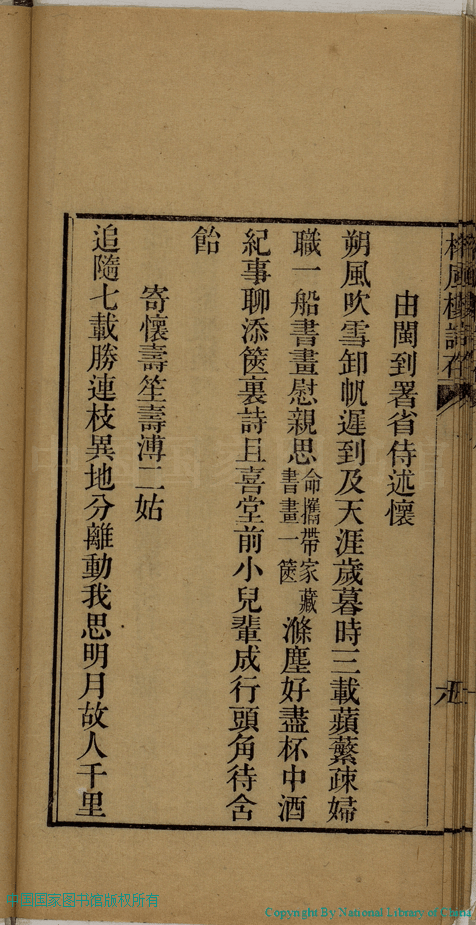 由閩到署省侍述懷
朔風吹雪卸帆遲到及天涯歲暮時三載蘋蘩疎婦
職一船書畫慰親思命攜帶家藏書畫一篋滌塵好盡杯中酒
紀事聊添篋裏詩且喜堂前小兒輩成行頭角待含
飴
寄懷壽笙壽溥二姑
追隨七載勝連枝異地分離動我思明月故人千里
中国国家图书馆版权所有
Copyright By National Library of China